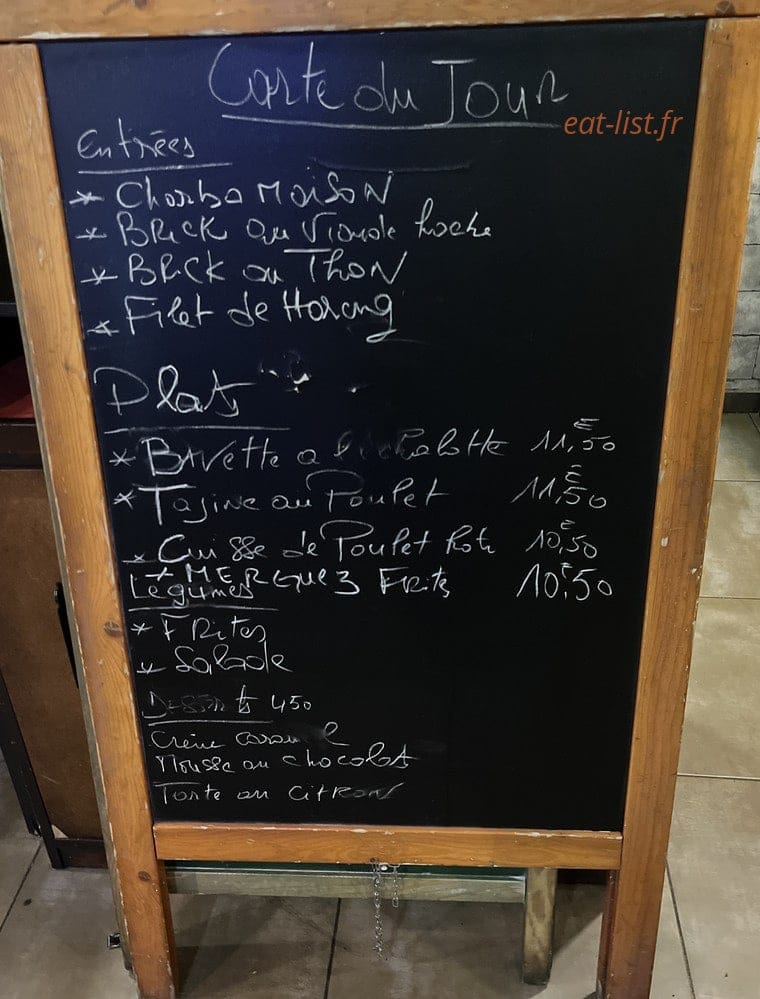 Carte du Jour
eat-list.fr
Entrées
* Chorba Maison
* Brick au Viande hachée
* Brick au Thon
* Filet de Hareng
Plats
* Bavette a l'échalotte 11,50 €
* Tajine au Poulet 11,50 €
* Cuisse de Poulet Roti 10,50 €
* MERGUEZ Frites 10,50 €
Légumes
* FRites
* Salade
Desserts 450
Crème caramel
Mousse au chocolat
Tarte au CitRon